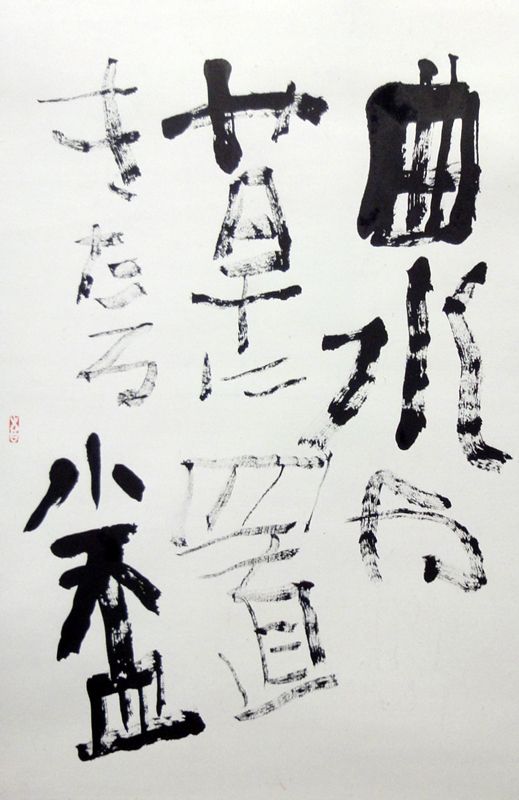 曲水の
草に置
きたる小盃